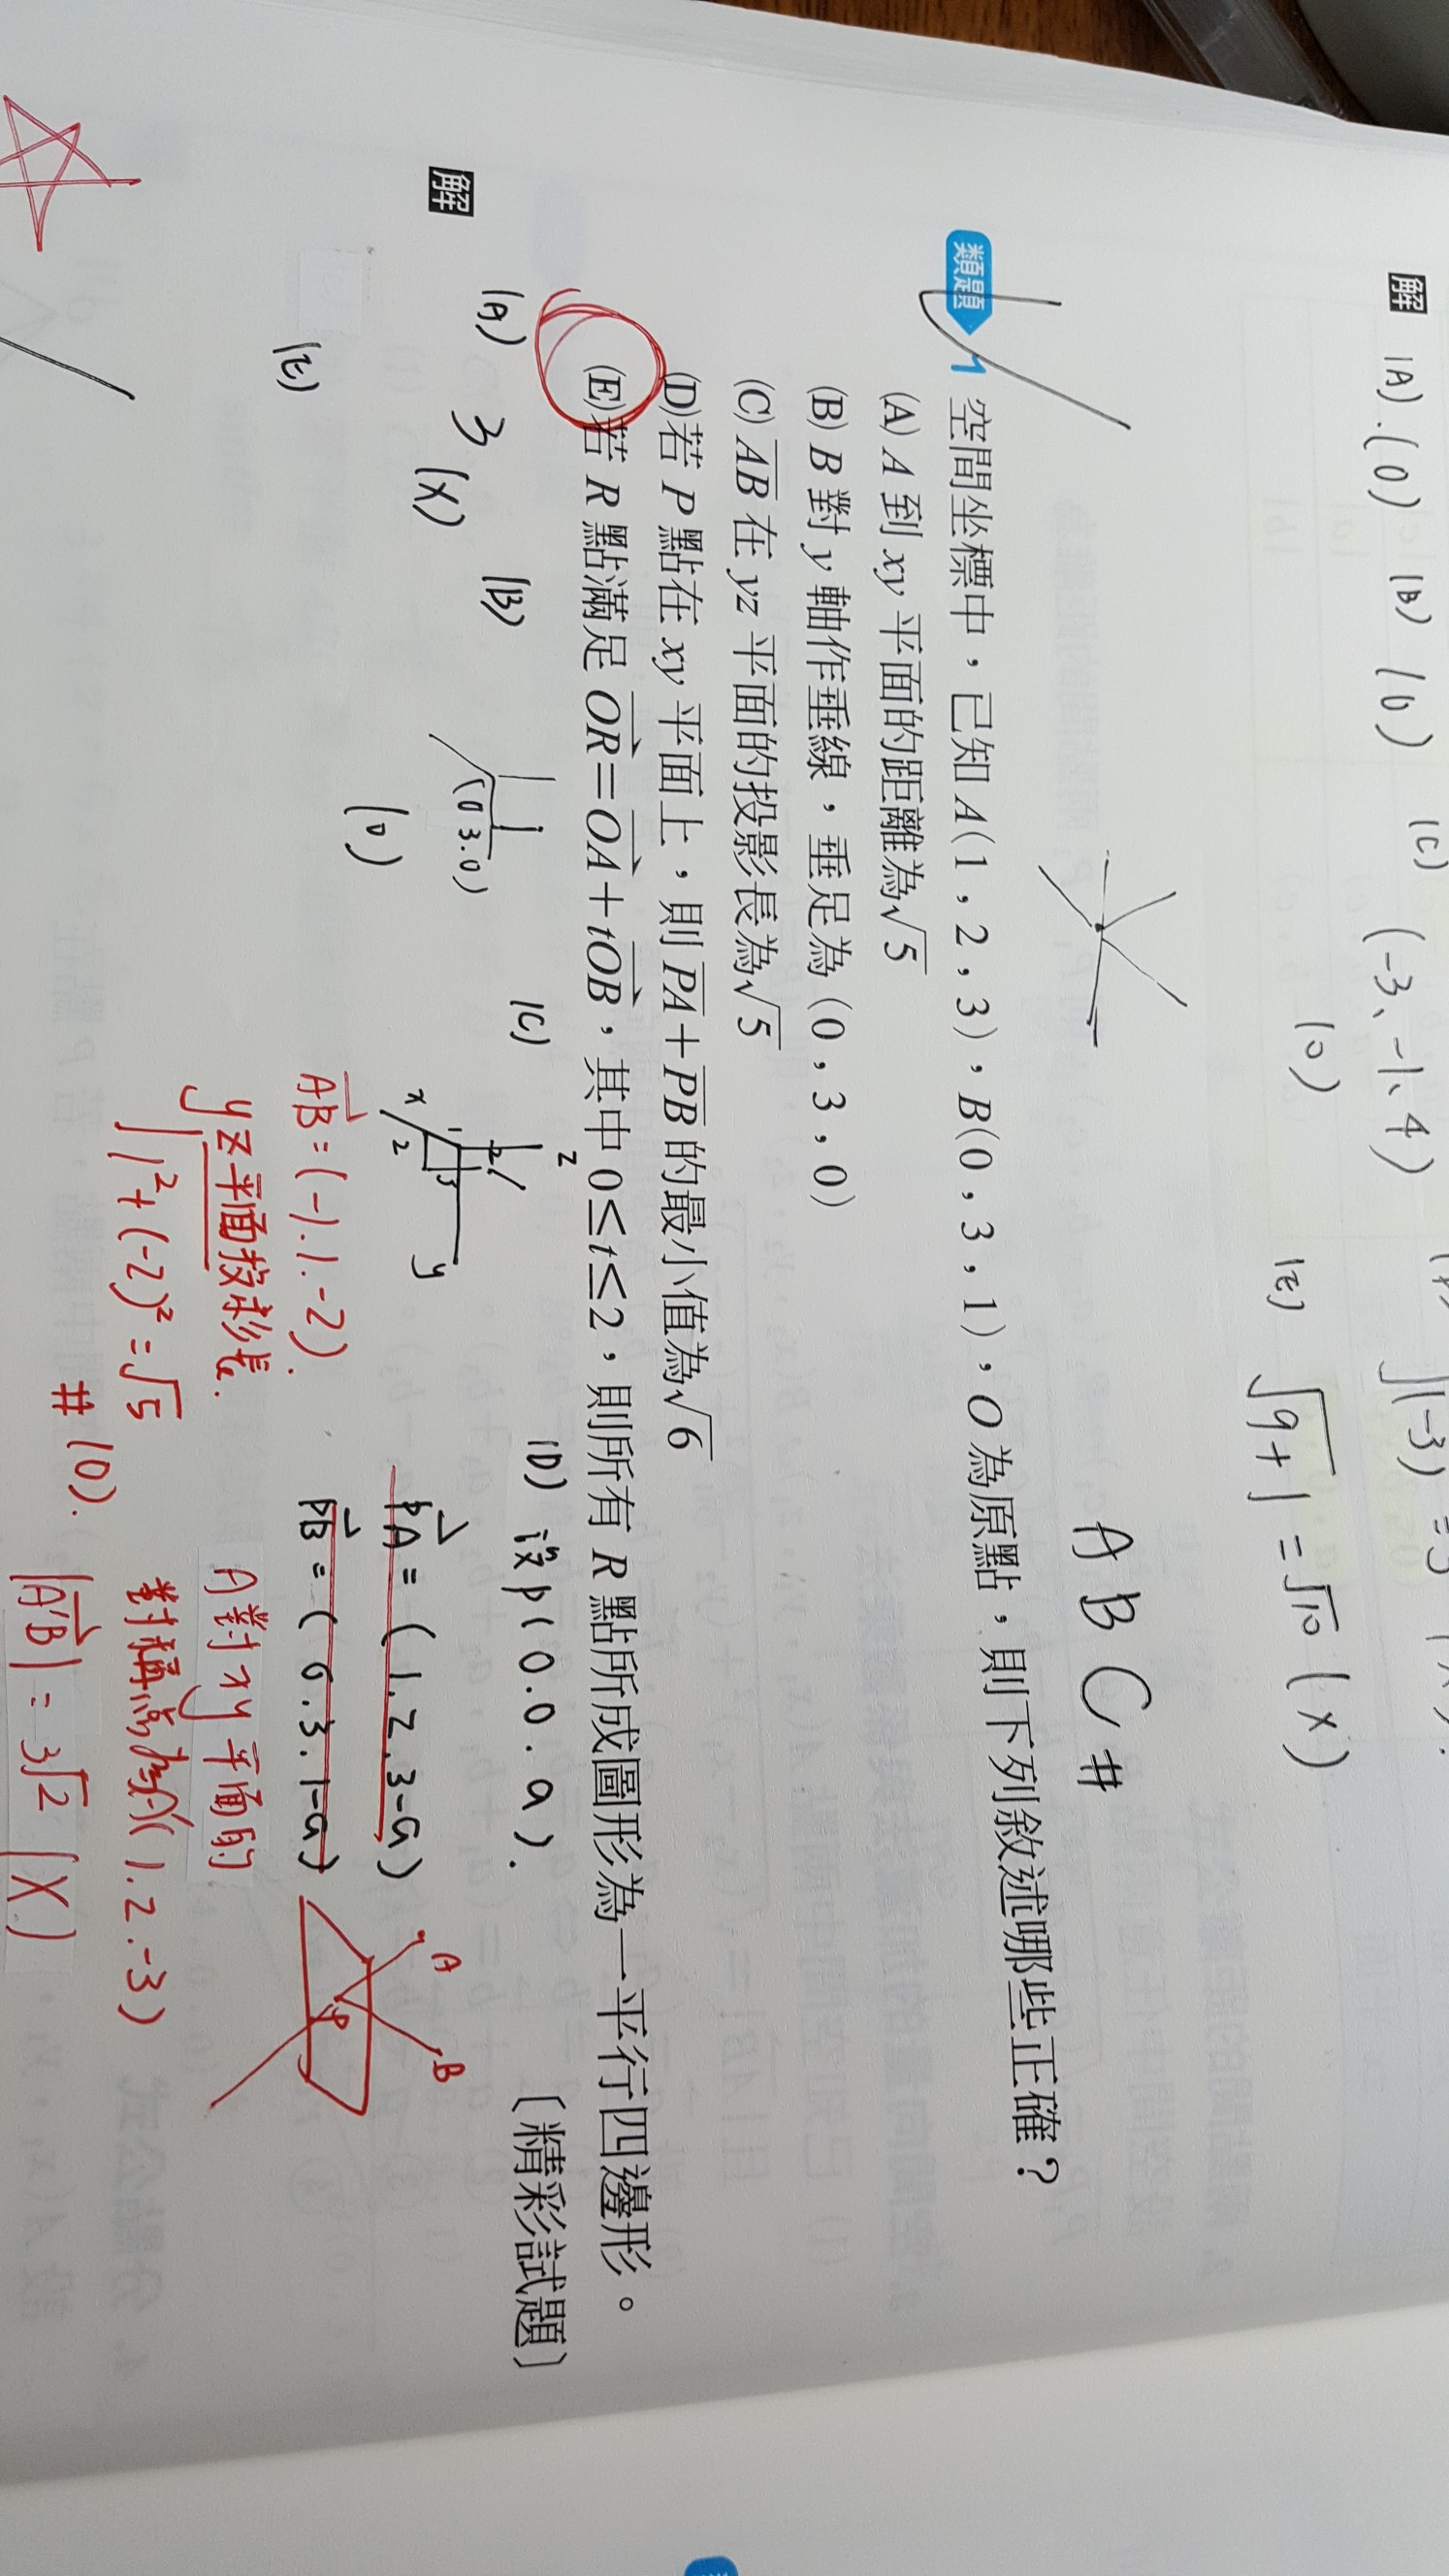 解 (A).(O) (B) (O) (C) (-3、-1、4)
(O)
(E) √9+1 = √10 (X)
A B C #
類題 1 空間坐標中，已知 A(1,2,3)，B(0,3,1)，O 為原點，則下列敘述哪些正確？
(A) A 到 xy 平面的距離為√5
(B) B 對 y 軸作垂線，垂足為 (0,3,0)
(C) AB 在 yz 平面的投影長為√5
(D) 若 P 點在 xy 平面上，則 PA+PB 的最小值為√6
(E) 若 R 點滿足 OR=OA+tOB，其中 0≤t≤2，則所有 R 點所成圖形為一平行四邊形。
〔精彩試題〕
解
(A) 3 (X)
(B)
(0 3.0)
(O)
(C)
z
x
y
1
2
3
AB = (-1.1.-2).
yz平面投影長.
√1²+(-2)² = √5
# (O).
(D) 設p(0.0.a).
PA = (1.2.3-a)
PB = (0.3.1-a)
A對xy平面的
對稱點為(1.2.-3)
|A'B| = 3√2 (X)
A
B
P
(E)